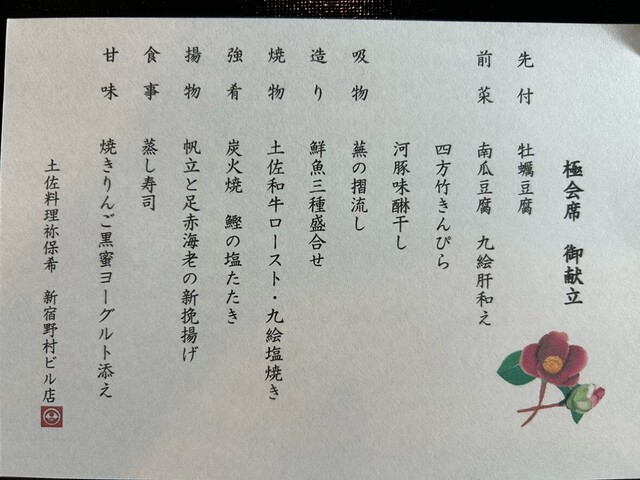 極会席 御献立
先付 牡蠣豆腐
前菜 南瓜豆腐 九絵肝和え
四方竹きんぴら
河豚味醂干し
吸物 蕪の摺流し
造り 鮮魚三種盛合せ
焼物 土佐和牛ロースト・九絵塩焼き
強肴 炭火焼 鰹の塩たたき
揚物 帆立と足赤海老の新挽揚げ
食事 蒸し寿司
甘味 焼きりんご黒蜜ヨーグルト添え
土佐料理祢保希 新宿野村ビル店